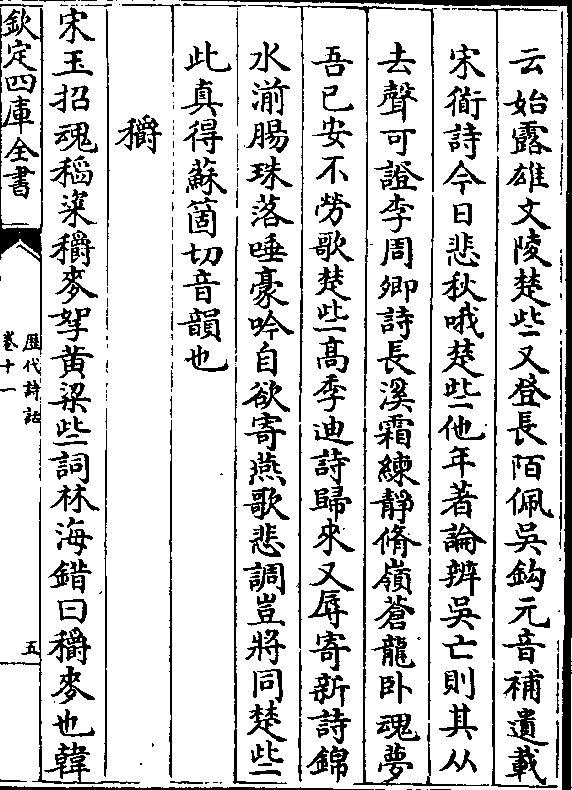 云始露雄文陵楚些又登長陌佩吳鈎元音補遺載
宋衜詩今日悲秋哦楚些他年著論辨吳亡則其从
去聲可證李周卿詩長溪霜練靜脩嶺蒼龍卧魂夢
吾已安不勞歌楚些高季迪詩歸來又辱寄新詩錦
水湔腸珠落唾豪吟自欲寄燕歌悲調豈將同楚些
此真得蘇箇切音韻也
穱
宋玉招魂稻粢穱麥挐黄粱些詞林海錯曰穱麥也韓
欽定四庫全書
歷代詩話
卷十一
五